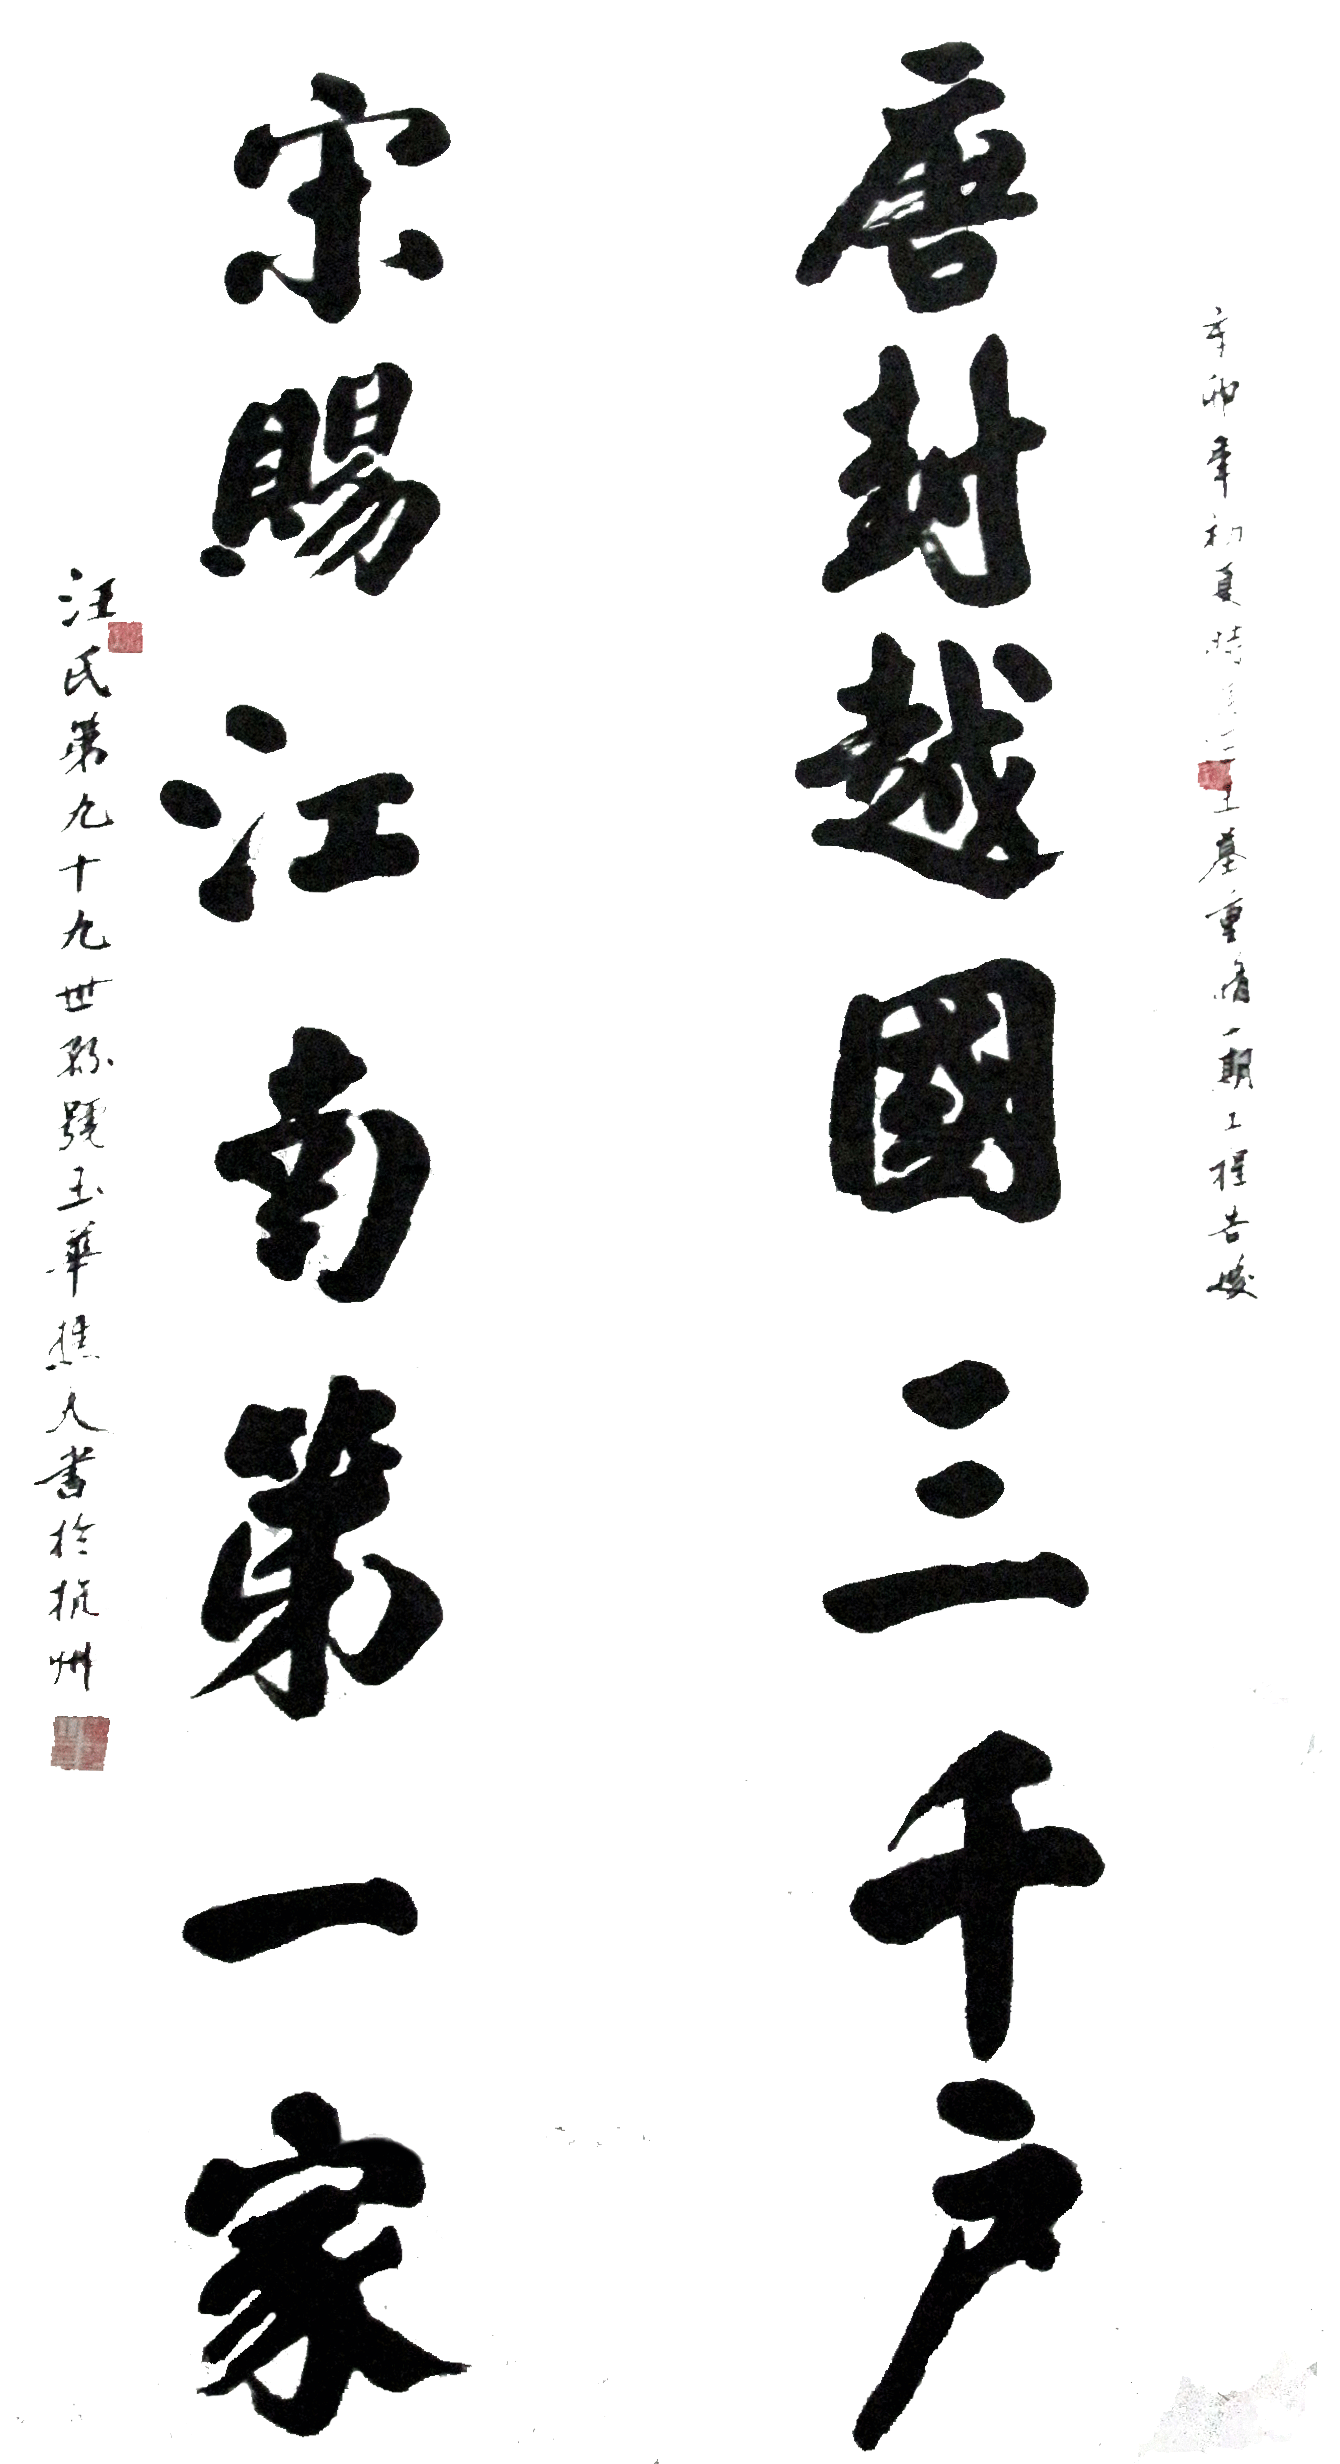 辛卯年初夏時王墓重脩一期工程告竣
唐封越國三千戶
宋賜江南第一家
汪氏第九十九世孫號玉華樵人書於杭州